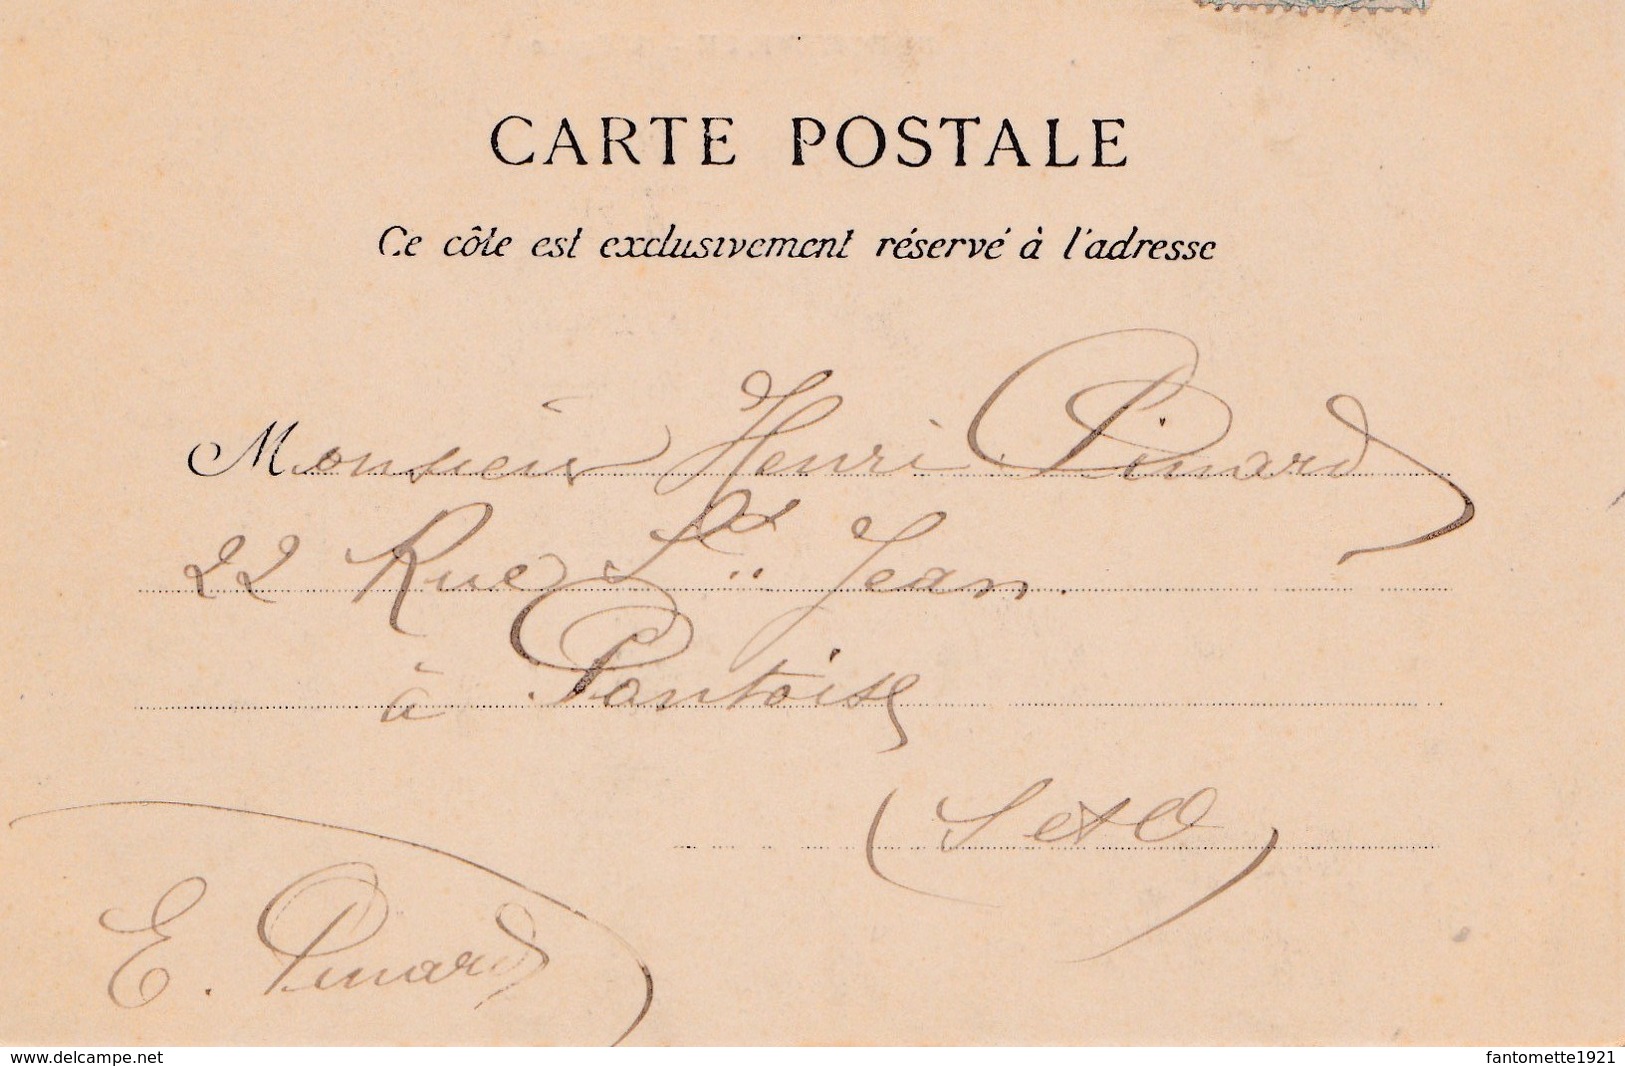 CARTE POSTALE
Ce côté est exclusivement réservé à l'adresse
Monsieur Henri Pinard
22 Rue St Jean
à Pontoise
(S et O)
E. Pinard
www.delcampe.net
fantomette1921